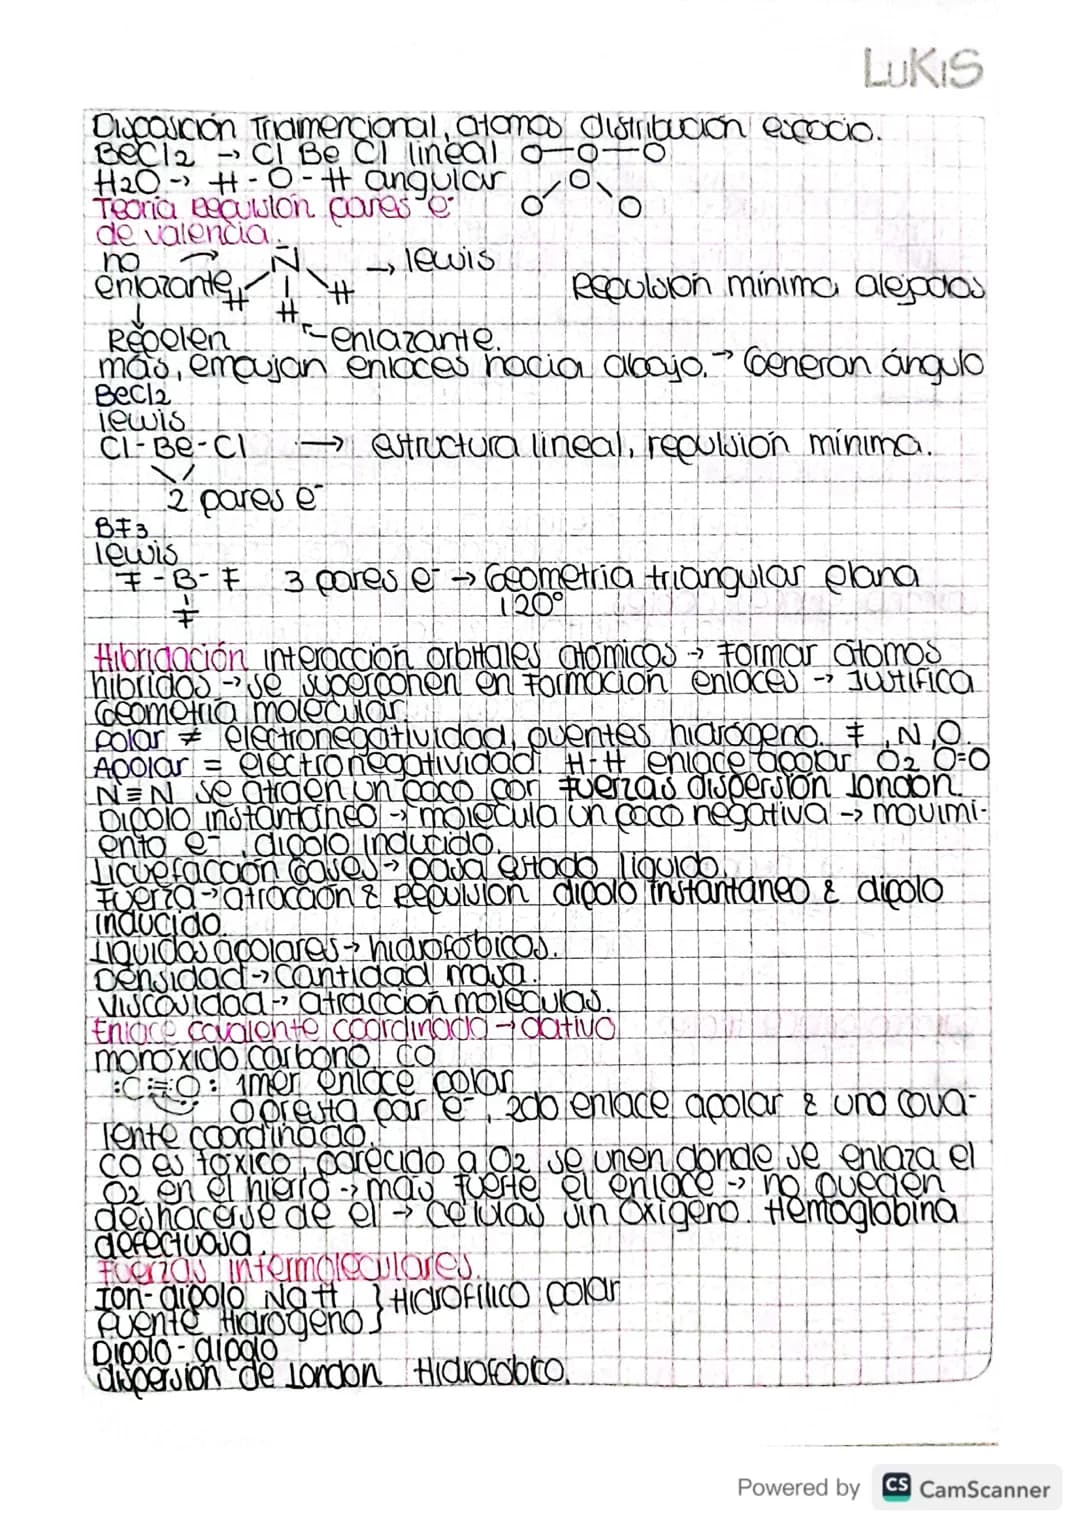 LUKIS
Disposición Tridimencional, átomos distribución espacio.
BeCl2 → Cl Be Cl lineal O-O-O
H2O → H-O-H angular O
Teoría Repulsión pares e- O O
de valencia.
no → N → lewis
enlazante H H Repulsión mínima alejados
↓ H
Repelen enlazante.
más, empujan enlaces hacia abajo. → Generan ángulo
BeCl2
lewis
Cl-Be-Cl → estructura lineal, repulsión mínima.
2 pares e-
BF3
lewis
F-B-F 3 pares e- → Geometría triangular plana
F 120°
Hibridación interacción orbitales atómicos → Formar átomos
híbridos → se superponen en formación enlaces → Justifica
Geometría molecular.
Polar ≠ electronegatividad, puentes hidrógeno. F, N, O.
Apolar = electronegatividad. H-H enlace apolar O2 O=O
N≡N se atraen un poco por fuerzas dispersión london.
Dipolo instantáneo → molécula un poco negativa → movimi-
ento e-, dipolo inducido.
Licuefacción Gases → pasa estado líquido.
Fuerza → atracción & Repulsión dipolo instantáneo & dipolo
inducido.
Liquidos apolares → hidrofóbicos.
Densidad → cantidad masa.
Viscosidad → atracción moléculas.
Enlace covalente coordinado → dativo
monóxido carbono CO
:C≡O: 1mer enlace polar
O presta par e-, 2do enlace apolar & uno cova-
lente coordinado.
CO es tóxico, parecido a O2 se unen donde se enlaza el
O2 en el hierro → más fuerte el enlace → no pueden
deshacerse de el → células sin oxígeno. Hemoglobina
defectuosa.
Fuerzas intermoleculares.
Ion-dipolo NaH } Hidrofílico polar
Puente Hidrógeno
Dipolo-dipolo
dispersión de London Hidrofóbico.
Powered by CS CamScanner